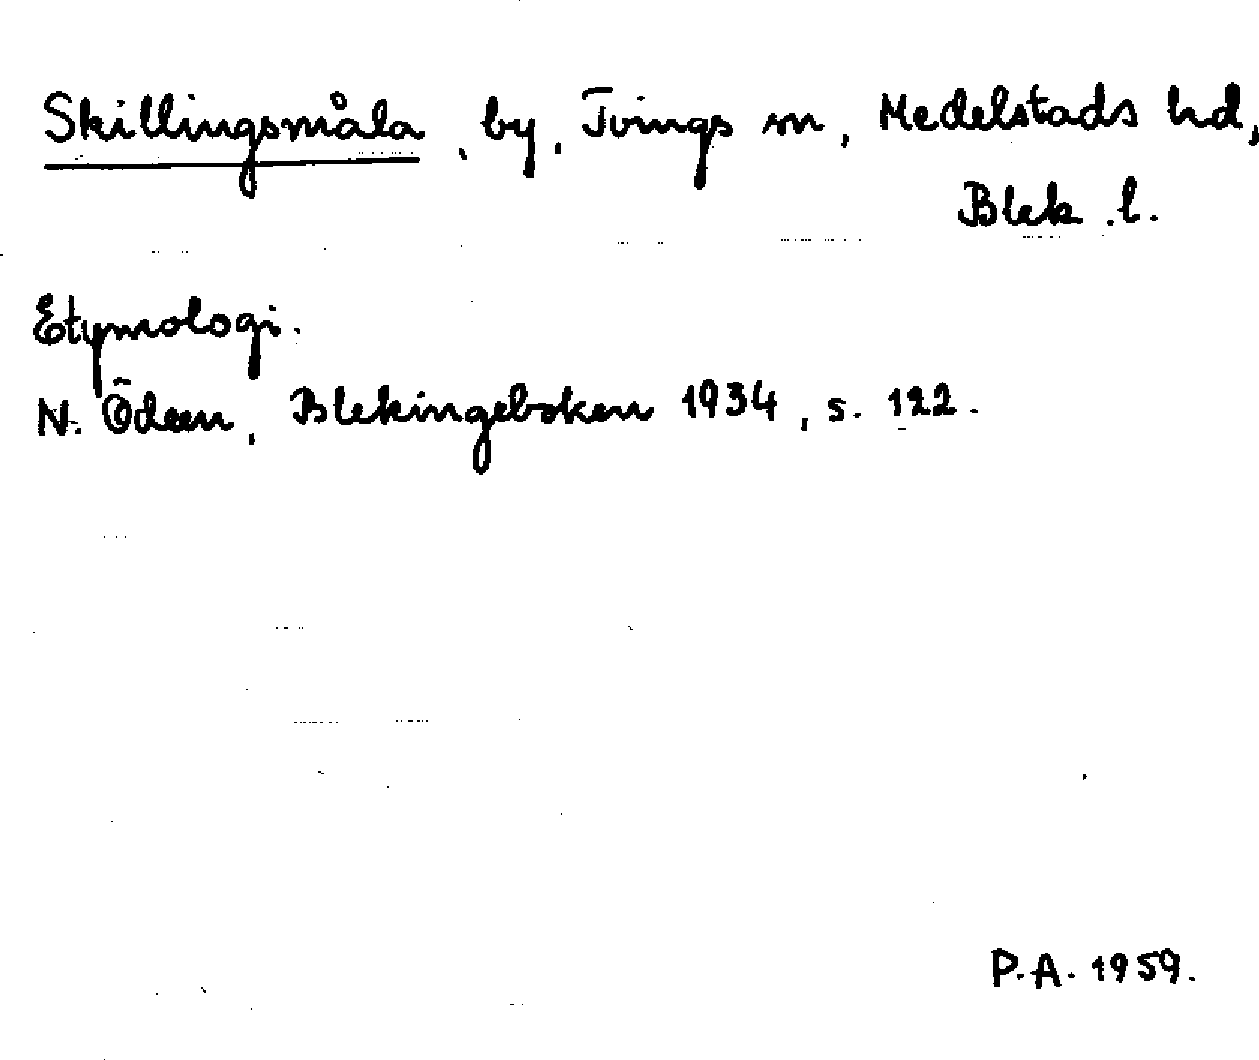 Skillingsmåla, by, Tvings sn, Medelstads hd,
Blek. l.
Etymologi.
N. Ödeen, Blekingeboken 1934, s. 122.
P.A. 1959.